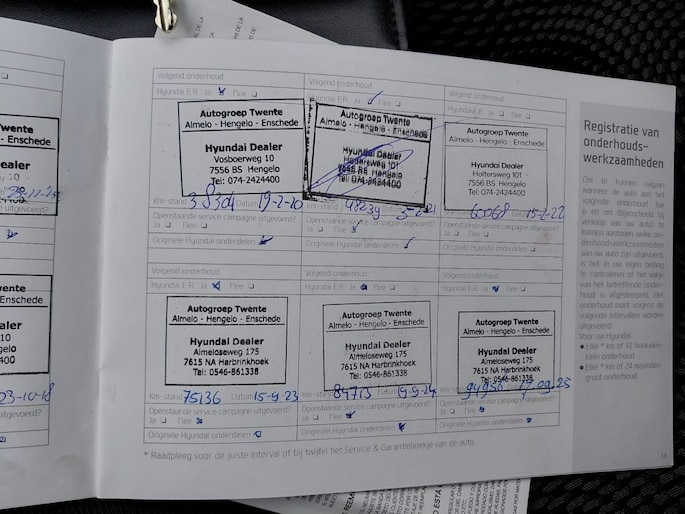 Volgend onderhoud
Hyundai E.R. Ja Nee
Autogroep Twente
Almelo - Hengelo - Enschede
Hyundai Dealer
Vosboerweg 10
7556 BS Hengelo
Tel: 074-2424400
Km-stand 38304 Datum 19-2-20
Openstaande service campagne uitgevoerd?
Ja Nee
Originele Hyundai onderdelen
Volgend onderhoud
E.R. Ja Nee
Autogroep Twente
Almelo - Hengelo - Enschede
Hyundai Dealer
Haltersweg 101
7556 BS Hengelo
Tel: 074-2424400
Km-stand 48239
Openstaande service campagne uitgevoerd?
Ja Nee
Originele Hyundai onderdelen
Volgend onderhoud
Hyundai E.R. Ja Nee
Autogroep Twente
Almelo - Hengelo - Enschede
Hyundai Dealer
Haltersweg 101
7556 BS Hengelo
Tel: 074-2424400
Km-stand 60068 Datum 15-2-22
Openstaande service campagne uitgevoerd?
Ja Nee
Originele Hyundai onderdelen
Volgend onderhoud
Hyundai E.R. Ja Nee
Autogroep Twente
Almelo - Hengelo - Enschede
Hyundai Dealer
Almeloseweg 175
7615 NA Harbrinkhoek
Tel: 0546-861338
Km-stand 75136 Datum 15-9-23
Openstaande service campagne uitgevoerd?
Ja Nee
Originele Hyundai onderdelen
Volgend onderhoud
Hyundai E.R. Ja Nee
Autogroep Twente
Almelo - Hengelo - Enschede
Hyundai Dealer
Almeloseweg 175
7615 NA Harbrinkhoek
Tel: 0546-861338
Km-stand 84713 Datum 19-9-24
Openstaande service campagne uitgevoerd?
Ja Nee
Originele Hyundai onderdelen
Volgend onderhoud
Hyundai E.R. Ja Nee
Autogroep Twente
Almelo - Hengelo - Enschede
Hyundai Dealer
Almeloseweg 175
7615 NA Harbrinkhoek
Tel: 0546-861338
Km-stand 94956 17-09-25
Openstaande service campagne uitgevoerd?
Ja Nee
Originele Hyundai onderdelen
* Raadpleeg voor de juiste interval of bij twijfel het Service & Garantieboekje van de auto.
Registratie van
onderhouds-
werkzaamheden
Om te kunnen nagaan
wanneer de auto aan het
volgende onderhoud toe
is en om (bijvoorbeeld bij
verkoop van uw auto) te
kunnen aantonen welke on-
derhoudswerkzaamheden
aan uw auto zijn uitgevoerd,
is het in uw eigen belang
te controleren of het vakje
van het betreffende onder-
houd is afgestempeld. Het
onderhoud moet volgens de
volgende intervallen worden
uitgevoerd:
Voor uw Hyundai:
• Elke * km of 12 maanden
klein onderhoud
• Elke * km of 24 maanden
groot onderhoud
Twente
Enschede
ealer
uitgevoerd?
Twente
Enschede
aler
10
gelo
400
03-10-18
uitgevoerd?